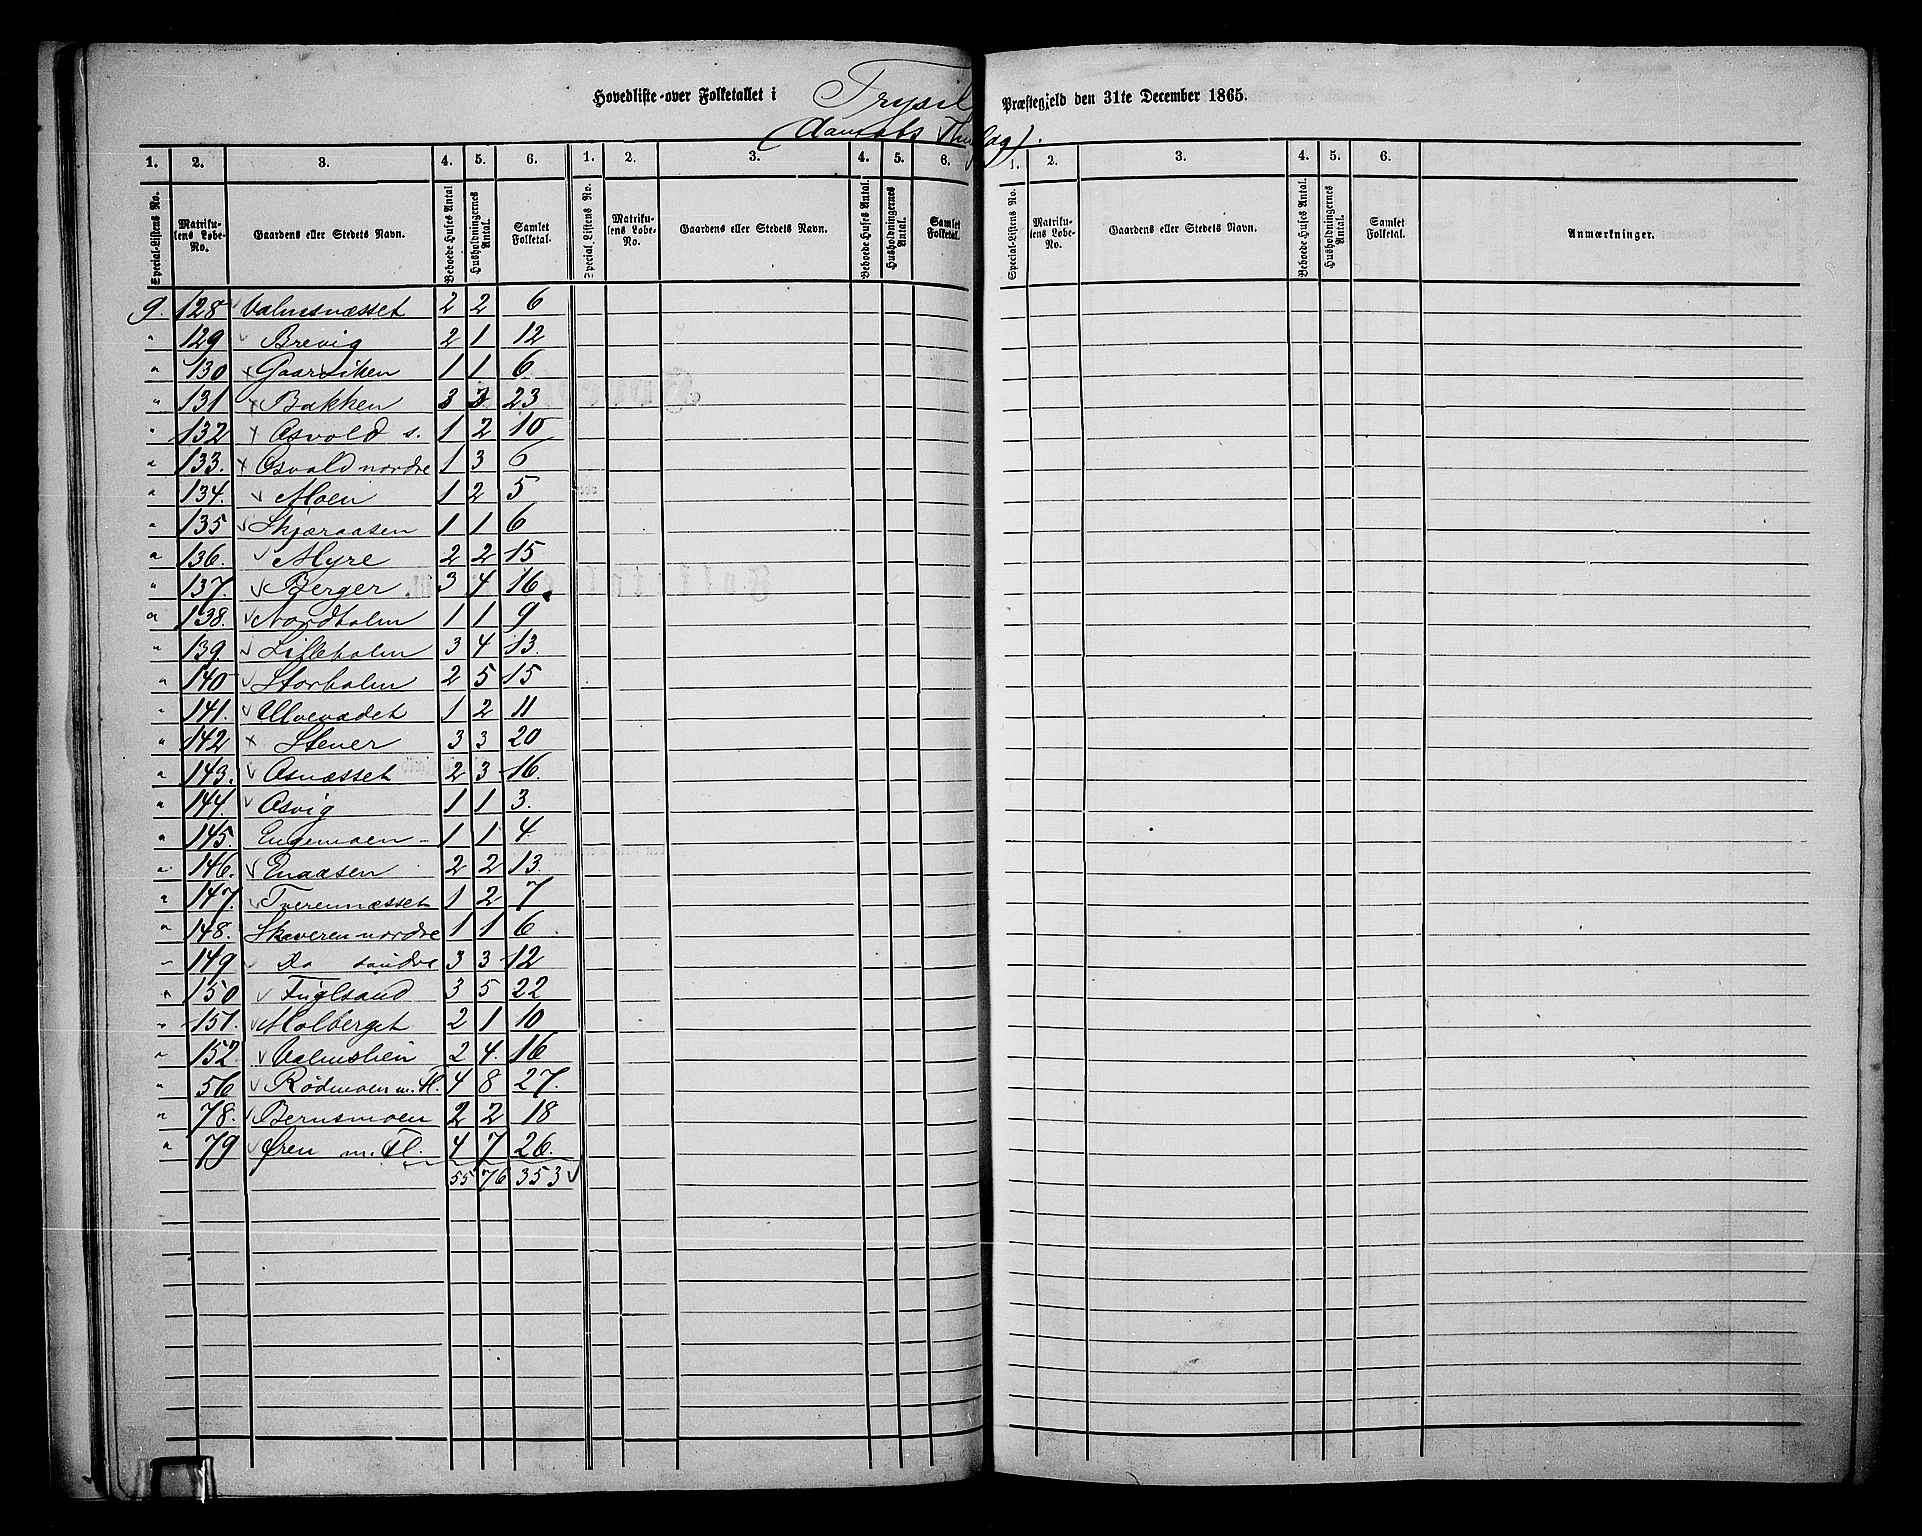 Hovedliste over Folketallet i Trysil Præstegjeld den 31te December 1865.
(Aamots Thinglag).
1. 2. 3. 4. 5. 6. 1. 2. 3. 4. 5. 6. 1. 2. 3. 4. 5. 6.
Special-Listens No. Matrikulens Løbe-No. Gaardens eller Stedets Navn. Beboede Huses Antal Husholdningernes Antal. Samlet Folketal. Special-Listens No. Matrikulens Løbe-No. Gaardens eller Stedets Navn. Beboede Huses Antal. Husholdningernes Antal. Samlet Folketal. Special-Listens No. Matrikulens Løbe-No. Gaardens eller Stedets Navn. Beboede Huses Antal. Husholdningernes Antal. Samlet Folketal. Anmærkninger.
9. 128 Valmsnæsset 2 2 6
" 129 Brevig 2 1 12
" 130 Gaardliken 1 1 6
" 131 Bakken 3 3 23
" 132 Osvold s. 1 2 10
" 133. Osvald nordre 1 3 6
" 134. Moen 1 2 5
" 135 Skjæraasen 1 1 6
" 136. Myre 2 2 15
" 137. Berger 3 4 16
" 138. Nordholm 1 1 9
" 139. Lilleholm 3 4 13.
" 140 Storholm 2 5 15
" 141. Ulvevadet 1 2 11
" 142 Stener 3 3 20
" 143. Osnæsset 2 3 16.
" 144. Osvig 1 1 3.
" 145. Engemoen 1 1 4.
" 146. Enaasen 2 2 13.
" 147. Tverennæsset 1 2 7
" 148. Skaveren nordre 1 1 6
" 149 Do søndre 3 3 12
" 150 Fuglsand 3 5 22
" 151. Molberget 2 1 10
" 152. Valmslien 2 4. 16
" 56 Rødmoen m. Fl. 4 8 27.
" 78. Bernsmoen 2 2 18
" 79 Øren m. Fl. 4 7 26.
55 76 353